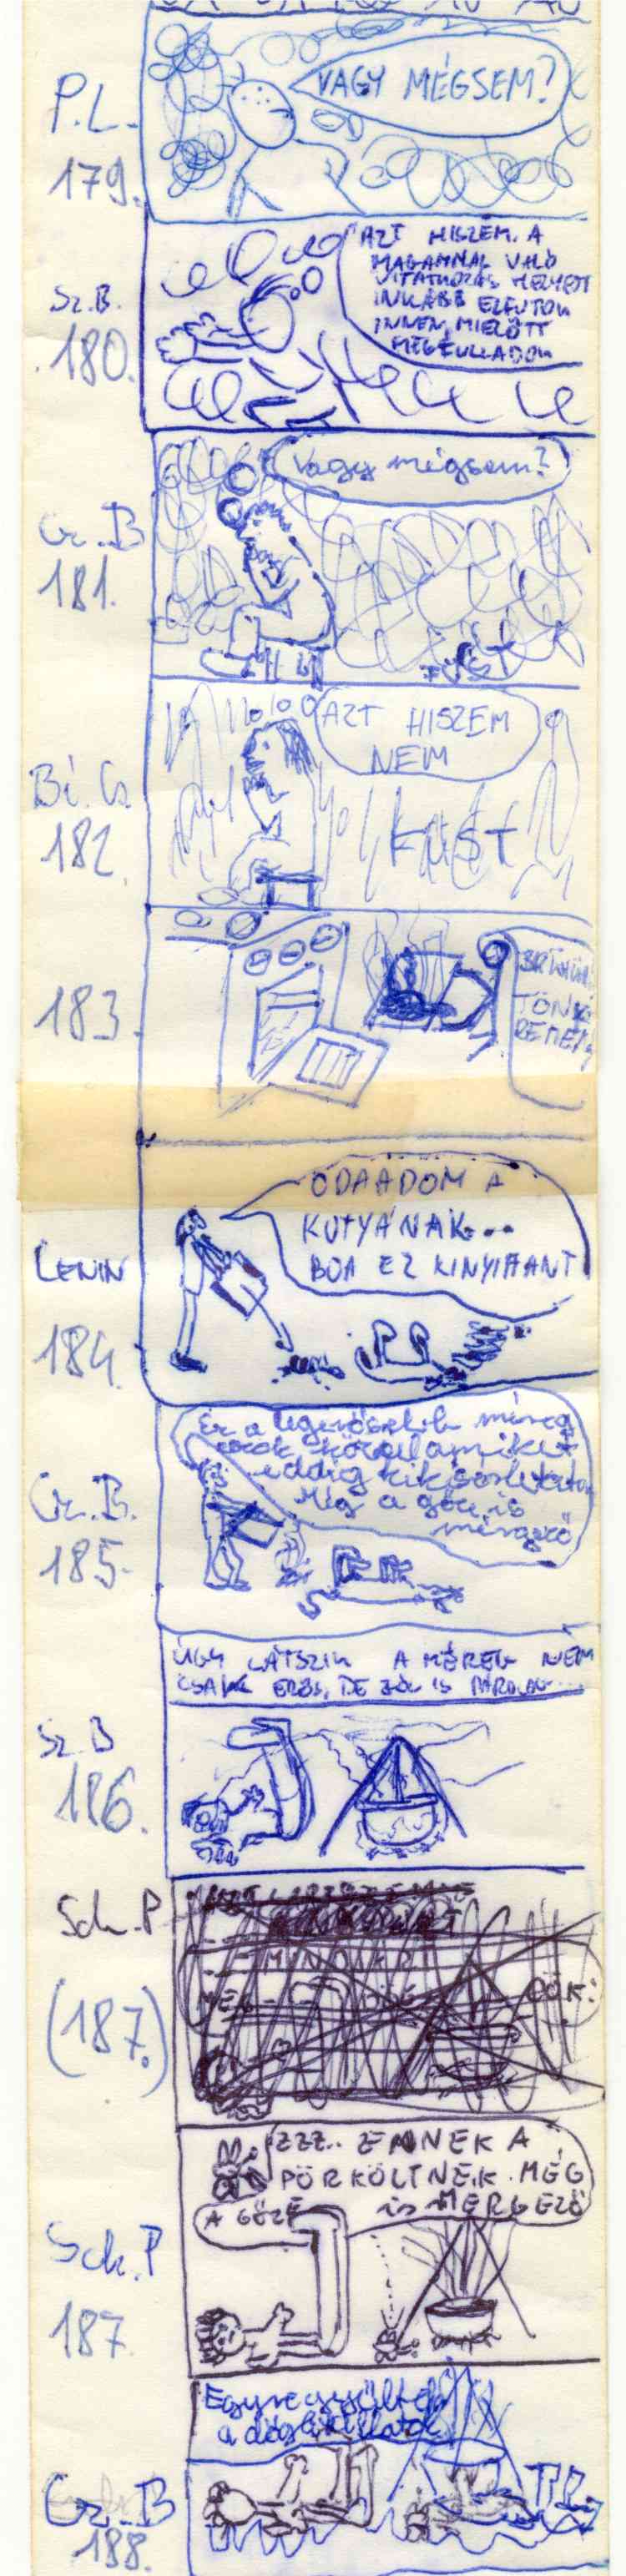 P.L.
179.
VAGY MÉGSEM?
Sz.B.
180.
AZT HISZEM, A
MAGAMNAL VALÓ
VITATKOZÁS HELYETT
INKÁBB ELFUTOK
INNEN, MIELŐTT
MEGFULLADOK
Cz.B
181.
Vagy mégsem?
FÜST
Bi.Cs
182.
AZT HISZEM
NEM
FÜST
183.
TÖNK
REMEN
LENIN
184.
ODAADOM A
KUTYÁNAK...
BOA EZ KINYIFFANT
Cz.B.
185.
Ez a legerősebb méreg
azok közül amiket
eddig kikísérleteztem
Még a gőze is
mérgező
Sz.B
186.
ÚGY LÁTSZIK A MÉREG NEM
CSAK ERŐS, DE JÓL IS PÁROLOG...
Sch.P
(187.)
Sch.P
187.
ZZZ.. ENNEK A
PÖRKÖLTNEK MÉG
A GŐZE is MÉRGEZŐ
Cz.B
188.
Egyre gyűltek
a dög